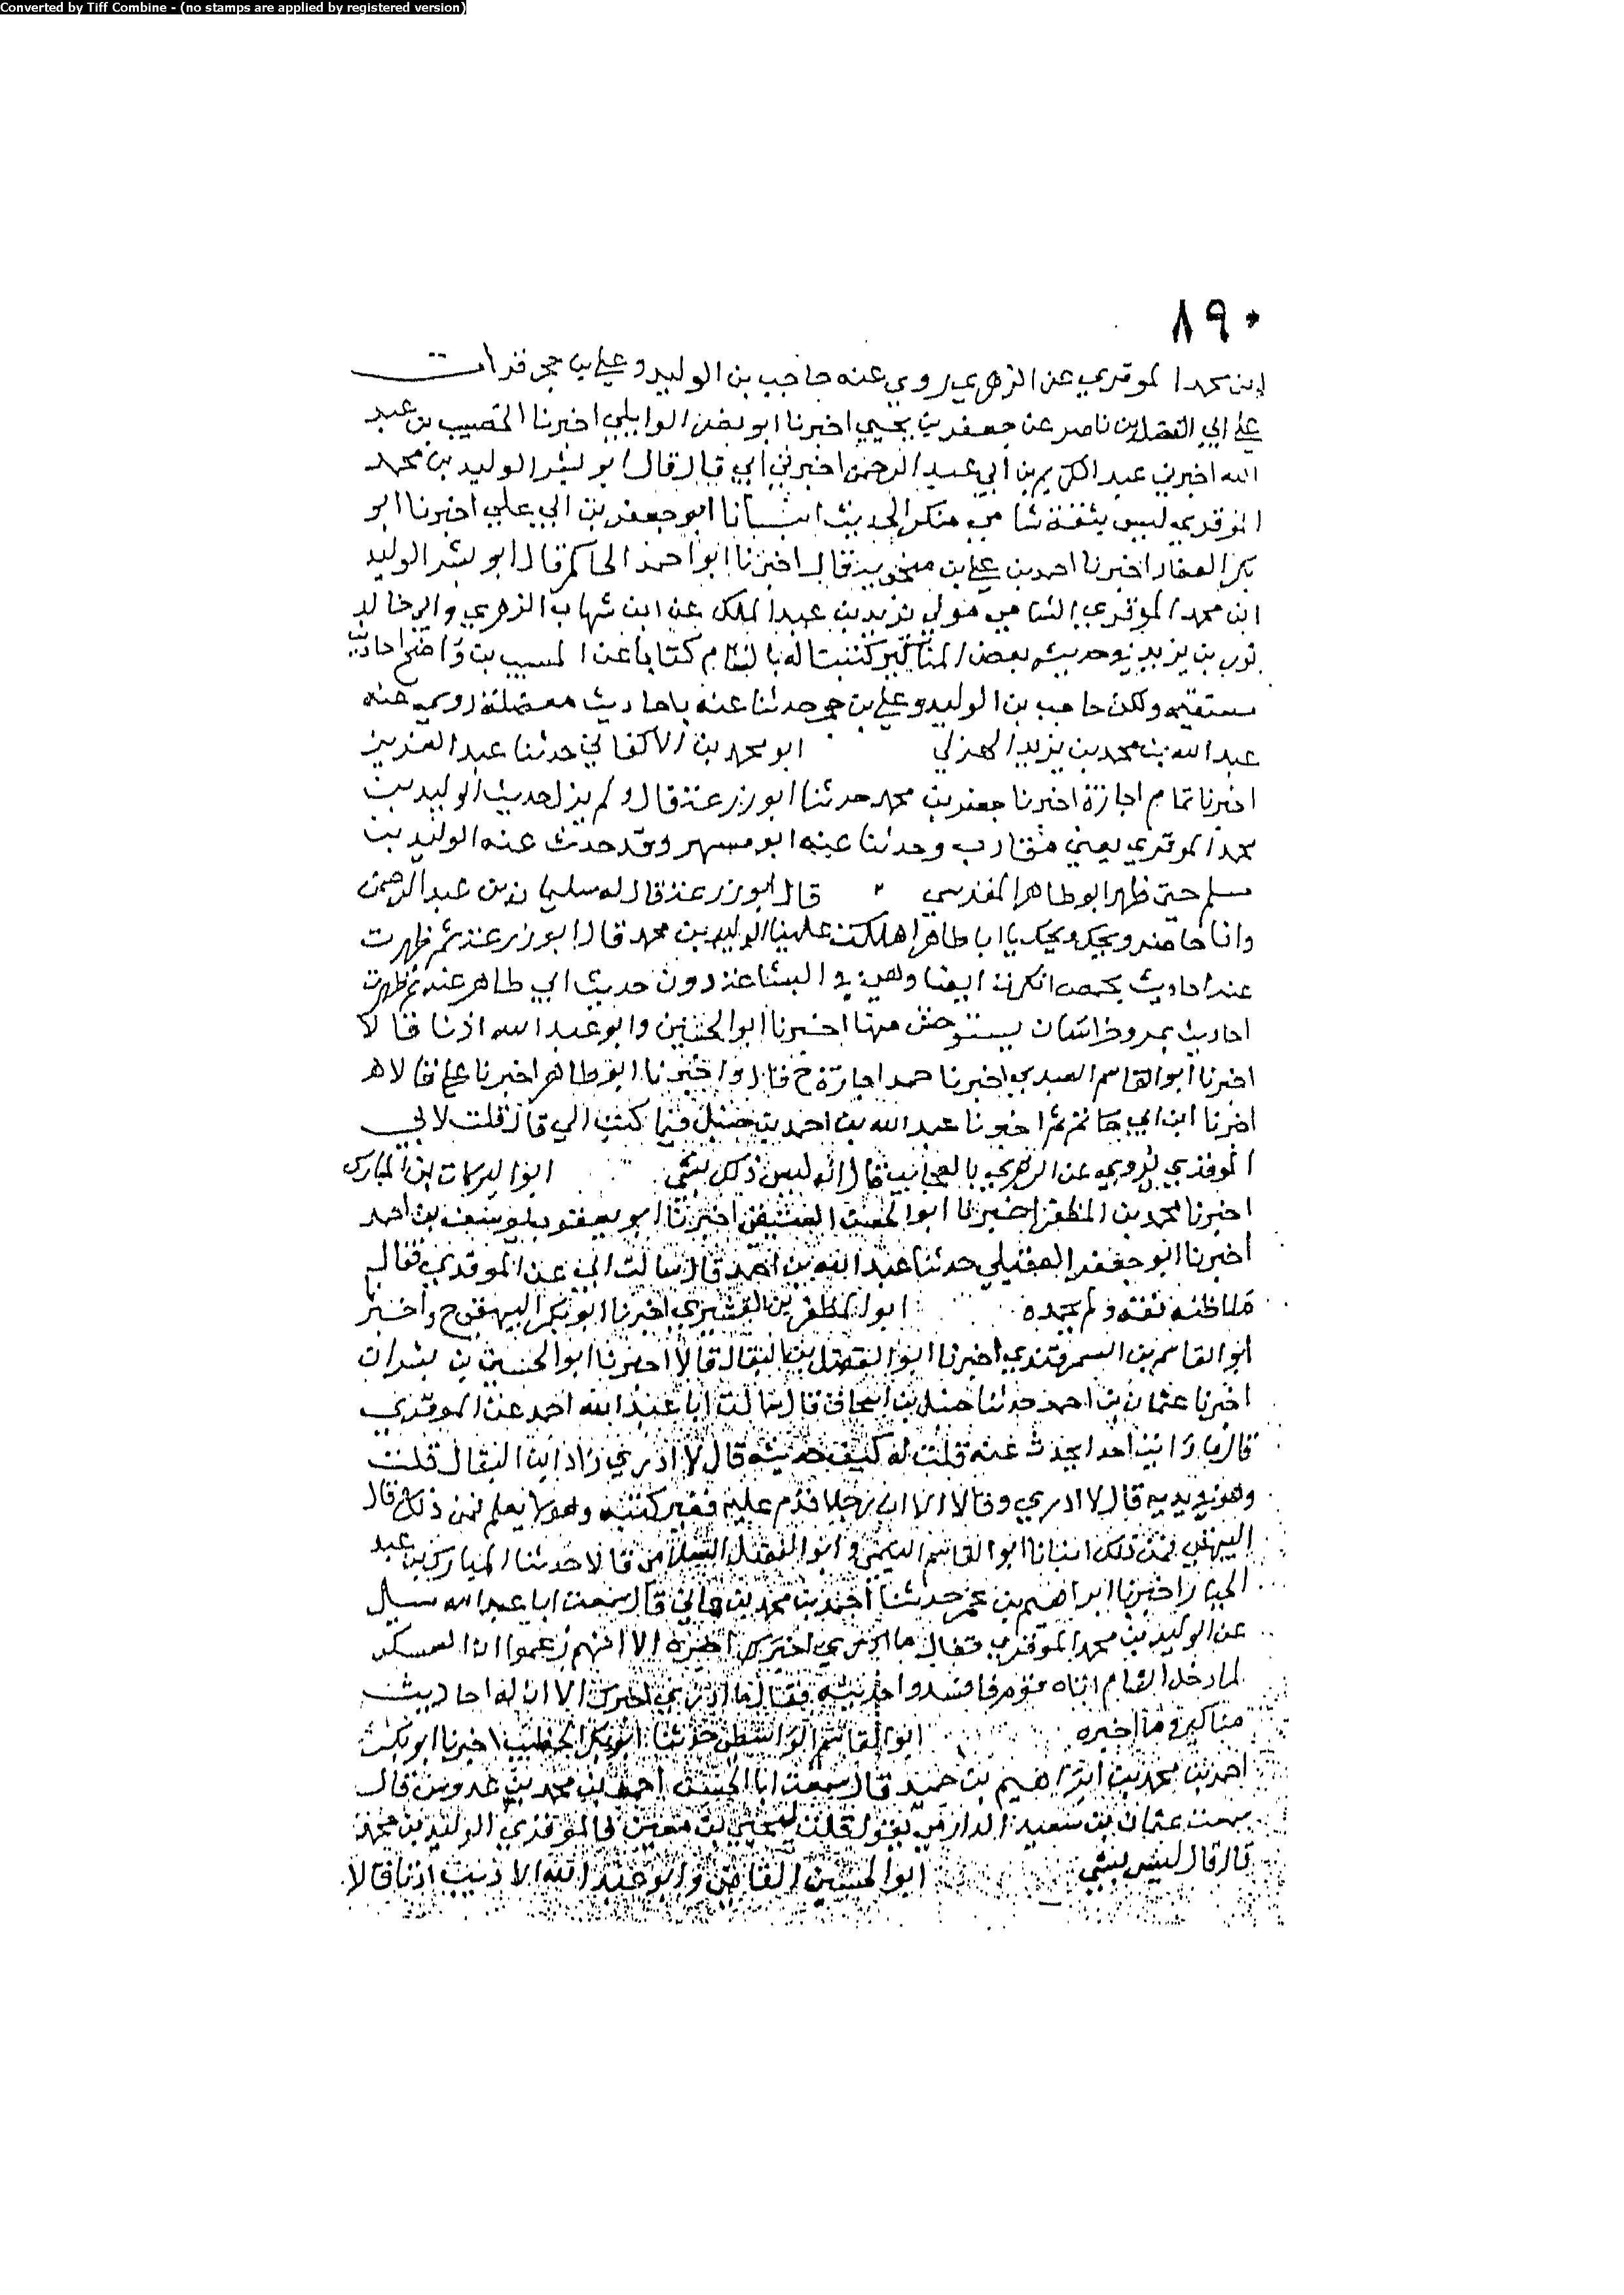 Converted by Tiff Combine - (no stamps are applied by registered version)
٨٩٠
ابن محمد الموقري عن الزهري روي عنه حاجب بن الوليد وعلي بن حجر قرات
علي ابي الفضل بن ناصر عن جعفر بن يحيي اخبرنا ابو نصر الوايلي اخبرنا الخصيب بن عبد
الله اخبرني عبد الكريم بن ابي عبد الرحمن اخبرني ابي قال قال ابو بشر الوليد بن محمد
الموقري ليس بثقة شامي منكر الحديث انبانا ابو جعفر بن ابي علي اخبرنا ابو
بكر الصفار اخبرنا احمد بن علي بن منجويه قال اخبرنا ابو احمد الحاكم قال ابو بشر الوليد
ابن محمد الموقري الشامي مولي يزيد بن عبد الملك عن ابن شهاب الزهري وابي خالد
ثور بن يزيد في حديثه بعض المناكير كتبنا له بالشام كتابا عن المسيب بن واضح احاديث
مستقيمه ولكن حاجب بن الوليد وعلي بن حجر حدثنا عنه باحاديث معضلة روي عنه
عبد الله بن محمد بن يزيد الهزلي ابو محمد بن الاكفاني حدثنا عبد العزيز
اخبرنا تمام اجازة اخبرنا جعفر بن محمد حدثنا ابو زرعة قال ولم يزل حديث الوليد بن
محمد الموقري يعني مقارب وحدثنا عنه ابو مسهر وقد حدث عنه الوليد بن
مسلم حتي ظهر ابو طاهر المقدسي قال ابو زرعة قال له سليمان بن عبد الرحمن
وانا حاضر ويحك ويحك يا ابا طاهر اهلكت علينا الوليد بن محمد قال ابو زرعة ثم ظهرت
عنه احاديث بحمص انكرت ايضا وهي في البشاعة دون حديث ابي طاهر عنه ثم ظهرت
احاديث بمرو خراسان يستوحش منها اخبرنا ابو الحسين وابو عبد الله اذنا قالا
اخبرنا ابو القاسم العبدي اخبرنا حمد اجازة ح قال واخبرنا ابو طاهر اخبرنا علي قالا
اخبرنا ابن ابي حاتم اخبرنا عبد الله بن احمد بن حنبل فيما كتب الي قال قلت لابي
الموقري يروي عن الزهري بالعجايب قال اه ليس ذلك بشي ابو البركات بن المبارك
اخبرنا محمد بن المظفر اخبرنا ابو الحسن العتيقي اخبرنا ابو يعقوب يوسف بن احمد
اخبرنا ابو جعفر العقيلي حدثنا عبد الله بن احمد قال سالت ابي عن الموقري فقال
ما اظنه ثقة ولم يحمده ابو المظفر بن القشيري اخبرنا ابو بكر البيهقي ح واخبرنا
ابو القاسم بن السمرقندي اخبرنا ابو الفضل بن البقال قالا اخبرنا ابو الحسين بن بشران
اخبرنا عثمان بن احمد حدثنا حنبل بن اسحاق قال سالت ابا عبد الله احمد عن الموقري
قال ما رايت احدا يحدث عنه قلت له كيف حديثه قال لا ادري زاد ابن البقال قلت
وهو في يديه قال لا ادري وقالا الا ان رجلا قدم عليه فغير كتبه وهو لا يعلم فمن ذلك قال
البيهقي فمن ذلك انبانا ابو القاسم وابو الفضل السلامي قالا حدثنا المبارك بن عبد
الجبار اخبرنا ابراهيم بن عمر حدثنا احمد بن محمد بن هاني قال سمعت ابا عبد الله سيل
عن الوليد بن محمد الموقري فقال ما ادري اخبرك اخبره الا انهم زعموا ان العسكر
لما دخل الشام اتاه قوم فافسدوا حديثه فقال ما ادري اخبرك الا ان له احاديث
مناكير وما اخبره ابو القاسم الواسطي حدثنا ابو بكر الخطيب اخبرنا ابو بكر
احمد بن محمد بن ابراهيم بن حميد قال سمعت ابا الحسن احمد بن محمد بن عبدوس قال
سمعت عثمان بن سعيد الدارمي يقول قلت ليحيي بن معين فالموقري الوليد بن محمد
قال قال ليس بشي ابو الحسين القاضي وابو عبد الله الاديب اذنا قالا